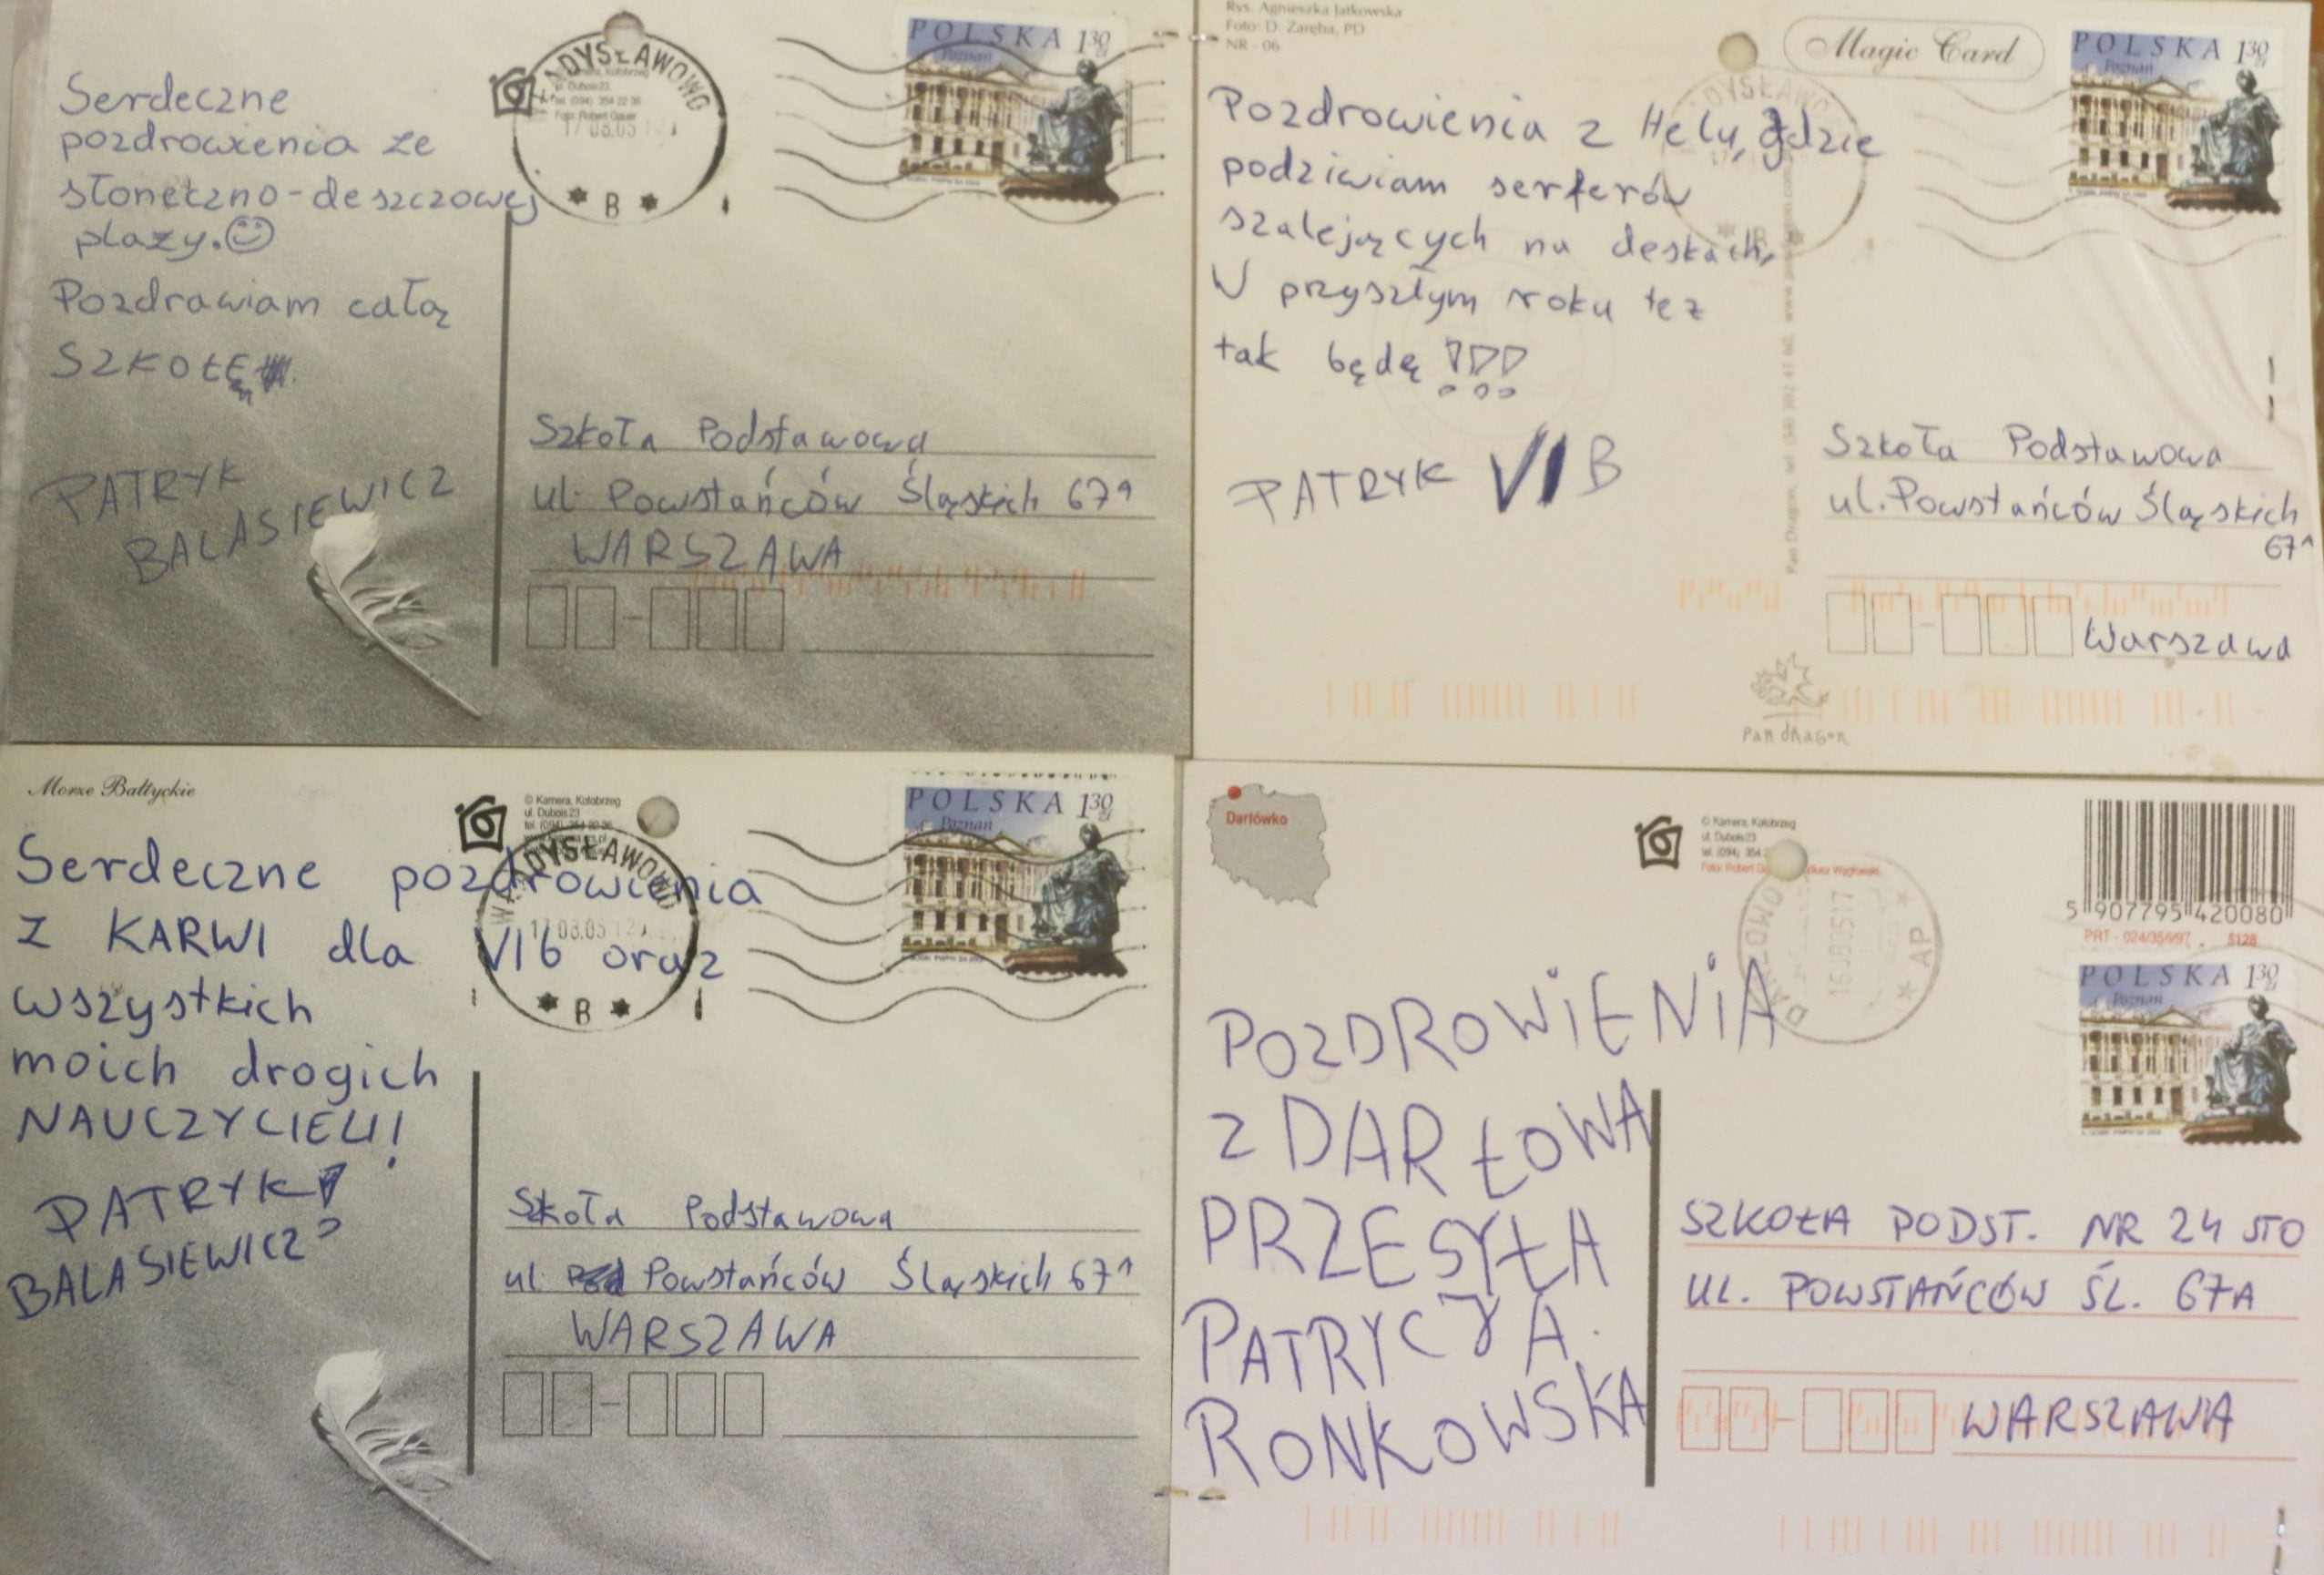 Serdeczne
pozdrowienia ze
słoneczno-deszczowej
plaży. ☺
Pozdrawiam całą
SZKOŁĘ
PATRYK
BALASIEWICZ
WŁADYSŁAWOWO
17 08.05 12
* B *
Kamera, Kołobrzeg
ul. Dubois 23,
tel. (094) 354 22 36
Foto: Robert Gauer
POLSKA 130 zł
Poznań
Szkoła Podstawowa
ul. Powstańców Śląskich 67A
WARSZAWA
Rys. Agnieszka Jatkowska
Foto: D. Zaręba, PD
NR - 06
Magic Card
POLSKA 130 zł
Poznań
Pozdrowienia z Helu, gdzie
podziwiam serferów
szalejących na deskach,
W przyszłym roku też
tak będę !!!
PATRYK VI B
Szkoła Podstawowa
ul. Powstańców Śląskich
67A
Warszawa
Pan Dragon
Morze Bałtyckie
© Kamera, Kołobrzeg
ul. Dubois 23
tel. (094) 354 22 36
WŁADYSŁAWOWO
17 08.05 12
* B *
POLSKA 130 zł
Poznań
Serdeczne pozdrowienia
Z KARWI dla VI b oraz
wszystkich
moich drogich
NAUCZYCIELI!
PATRYK
BALASIEWICZ
Szkoła Podstawowa
ul. Powstańców Śląskich 67A
WARSZAWA
Darłówko
© Kamera, Kołobrzeg
ul. Dubois 23
tel. (094) 354 2
DARŁOWO
16.08.05 17
* AP *
5 907795 420080
PRT - 024/356/97 5128
POLSKA 130 zł
Poznań
POZDROWIENIA
Z DARŁOWA
PRZESYŁA
PATRYCJA
RONKOWSKA
SZKOŁA PODST. NR 24 STO
UL. POWSTAŃCÓW ŚL. 67A
WARSZAWA